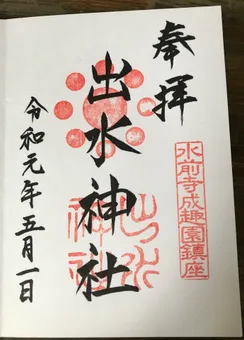 奉拝
水前寺成趣園鎮座
出水神社
出水
神社
令和元年五月一日